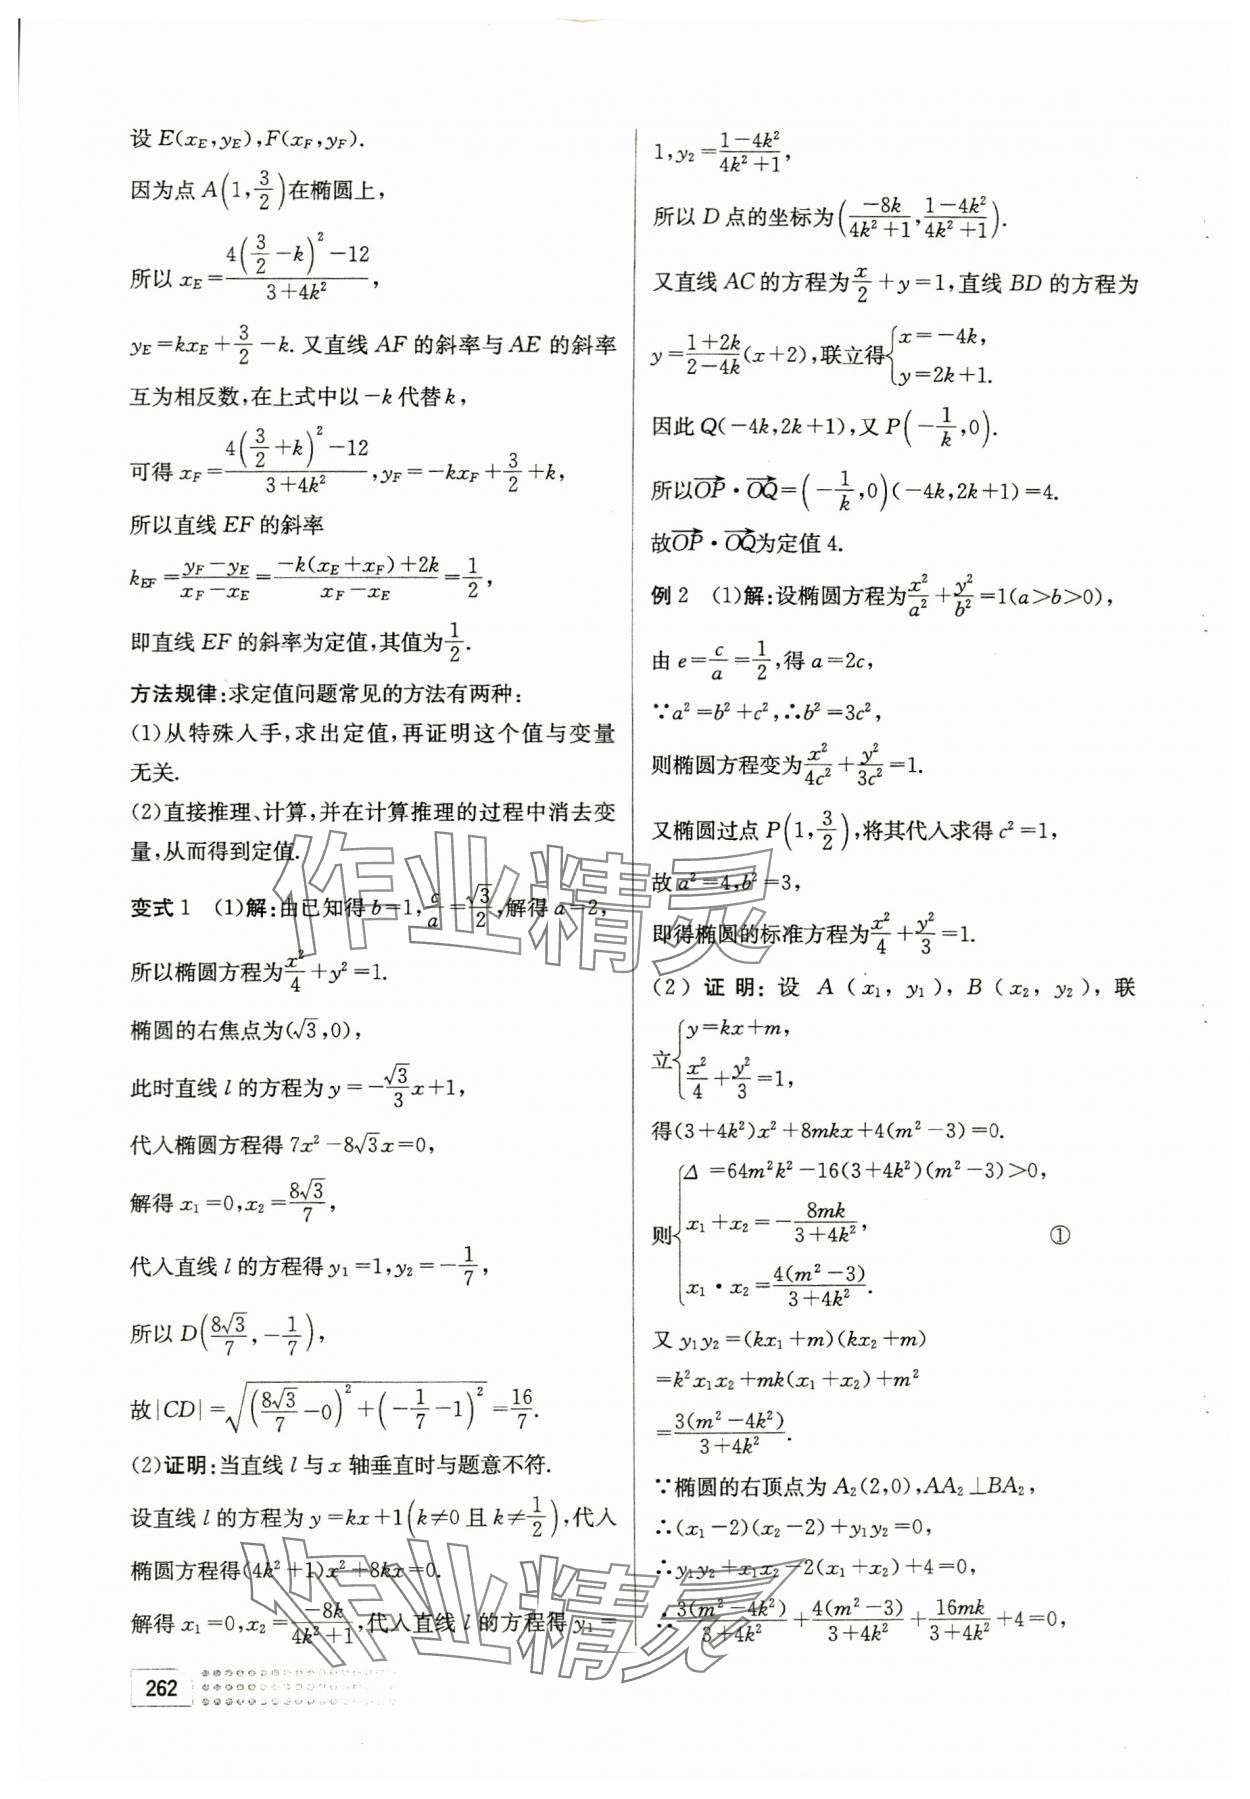 设 E(x_E,y_E),F(x_F,y_F).
因为点 A(1,3/2)在椭圆上,
所以 x_E=(4(3/2-k)²-12)/(3+4k²),
y_E=kx_E+3/2-k. 又直线 AF 的斜率与 AE 的斜率
互为相反数,在上式中以-k 代替 k,
可得 x_F=(4(3/2+k)²-12)/(3+4k²),y_F=-kx_F+3/2+k,
所以直线 EF 的斜率
k_EF=(y_F-y_E)/(x_F-x_E)=(-k(x_E+x_F)+2k)/(x_F-x_E)=1/2,
即直线 EF 的斜率为定值,其值为1/2.
方法规律:求定值问题常见的方法有两种:
(1)从特殊入手,求出定值,再证明这个值与变量
无关.
(2)直接推理、计算,并在计算推理的过程中消去变
量,从而得到定值.
变式 1 (1)解:由已知得 b=1,c/a=√3/2,解得 a=2,
所以椭圆方程为x²/4+y²=1.
椭圆的右焦点为(√3,0),
此时直线 l 的方程为 y=-√3/3x+1,
代入椭圆方程得 7x²-8√3x=0,
解得 x₁=0,x₂=8√3/7,
代入直线 l 的方程得 y₁=1,y₂=-1/7,
所以 D(8√3/7,-1/7),
故|CD|=√((8√3/7-0)²+(-1/7-1)²)=16/7.
(2)证明:当直线 l 与 x 轴垂直时与题意不符.
设直线 l 的方程为 y=kx+1(k≠0 且 k≠1/2),代入
椭圆方程得(4k²+1)x²+8kx=0.
解得 x₁=0,x₂=-8k/(4k²+1),代入直线 l 的方程得 y₁=
262
1,y₂=(1-4k²)/(4k²+1),
所以 D 点的坐标为(-8k/(4k²+1),(1-4k²)/(4k²+1)).
又直线 AC 的方程为x/2+y=1,直线 BD 的方程为
y=(1+2k)/(2-4k)(x+2),联立得{x=-4k,
y=2k+1.
因此 Q(-4k,2k+1),又 P(-1/k,0).
所以OP→·OQ→=(-1/k,0)(-4k,2k+1)=4.
故OP→·OQ→为定值 4.
例 2 (1)解:设椭圆方程为x²/a²+y²/b²=1(a>b>0),
由 e=c/a=1/2,得 a=2c,
∵a²=b²+c²,∴b²=3c²,
则椭圆方程变为x²/4c²+y²/3c²=1.
又椭圆过点 P(1,3/2),将其代入求得 c²=1,
故 a²=4,b²=3,
即得椭圆的标准方程为x²/4+y²/3=1.
(2)证明:设 A(x₁,y₁),B(x₂,y₂),联
立{y=kx+m,
x²/4+y²/3=1,
得(3+4k²)x²+8mkx+4(m²-3)=0.
则{Δ=64m²k²-16(3+4k²)(m²-3)>0,
x₁+x₂=-8mk/(3+4k²), ①
x₁·x₂=4(m²-3)/(3+4k²).
又 y₁y₂=(kx₁+m)(kx₂+m)
=k²x₁x₂+mk(x₁+x₂)+m²
=3(m²-4k²)/(3+4k²).
∵椭圆的右顶点为 A₂(2,0),AA₂⊥BA₂,
∴(x₁-2)(x₂-2)+y₁y₂=0,
∴y₁y₂+x₁x₂-2(x₁+x₂)+4=0,
∴3(m²-4k²)/(3+4k²)+4(m²-3)/(3+4k²)+16mk/(3+4k²)+4=0,
作业精灵
作业精灵